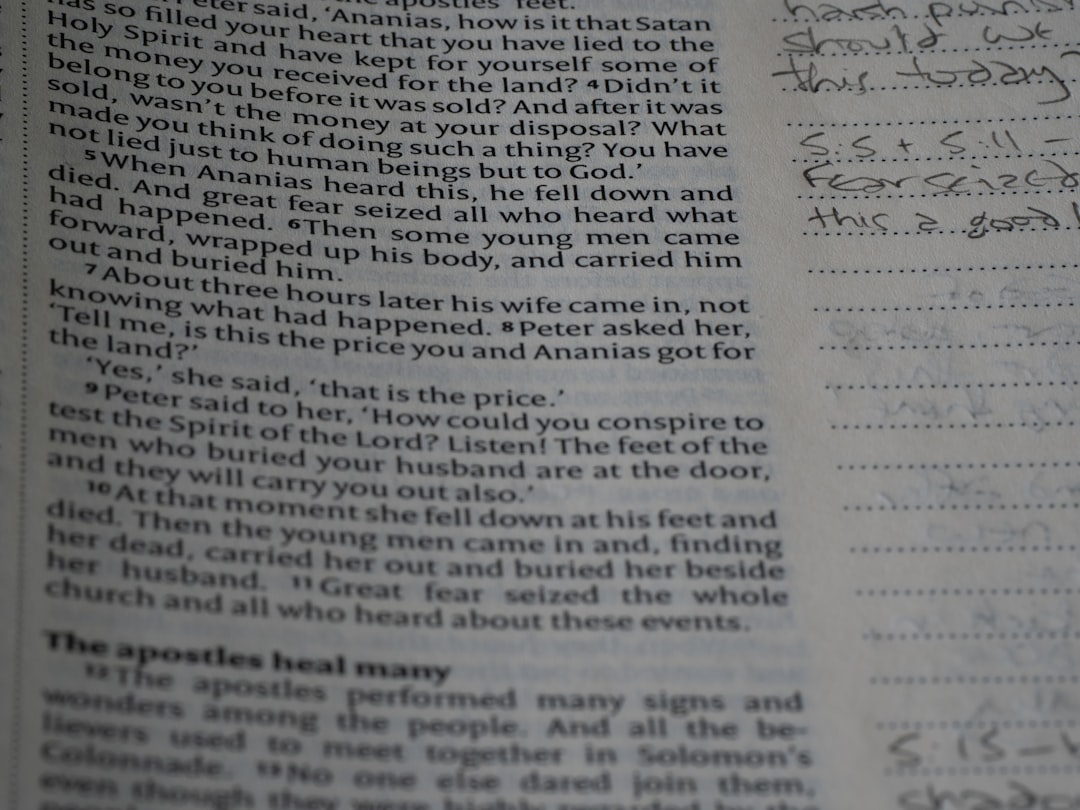 apostles' feet.
has so filled your heart that you have lied to the
Peter said, 'Ananias, how is it that Satan
Holy Spirit and have kept for yourself some of
the money you received for the land? 4 Didn't it
belong to you before it was sold? And after it was
sold, wasn't the money at your disposal? What
made you think of doing such a thing? You have
not lied just to human beings but to God.'
5 When Ananias heard this, he fell down and
died. And great fear seized all who heard what
had happened. 6 Then some young men came
forward, wrapped up his body, and carried him
out and buried him.
7 About three hours later his wife came in, not
knowing what had happened. 8 Peter asked her,
'Tell me, is this the price you and Ananias got for
the land?'
'Yes,' she said, 'that is the price.'
9 Peter said to her, 'How could you conspire to
test the Spirit of the Lord? Listen! The feet of the
men who buried your husband are at the door,
and they will carry you out also.'
10 At that moment she fell down at his feet and
died. Then the young men came in and, finding
her dead, carried her out and buried her beside
her husband. 11 Great fear seized the whole
church and all who heard about these events.
The apostles heal many
12 The apostles performed many signs and
wonders among the people. And all the be-
lievers used to meet together in Solomon's
Colonnade. 13 No one else dared join them,
even though they were highly regarded by the
harsh
should we
this today?
5:5 + 5:11 -
fear seized
this a good
5:15 -